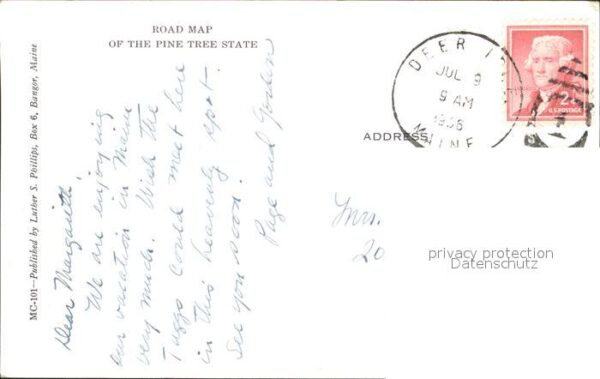 ROAD MAP
OF THE PINE TREE STATE
MC-101—Published by Luther S. Phillips, Box 6, Bangor, Maine
Dear Margarieth,
We are enjoying
our vacation in Maine
very much. Wish the
Taggs could meet here
in this heavenly spot.
See you soon.
Page and Gordon
DEER ISLE
JUL 9
9 AM
1956
MAINE
2¢
U.S. POSTAGE
ADDRESS
Mrs.
20
privacy protection
Datenschutz